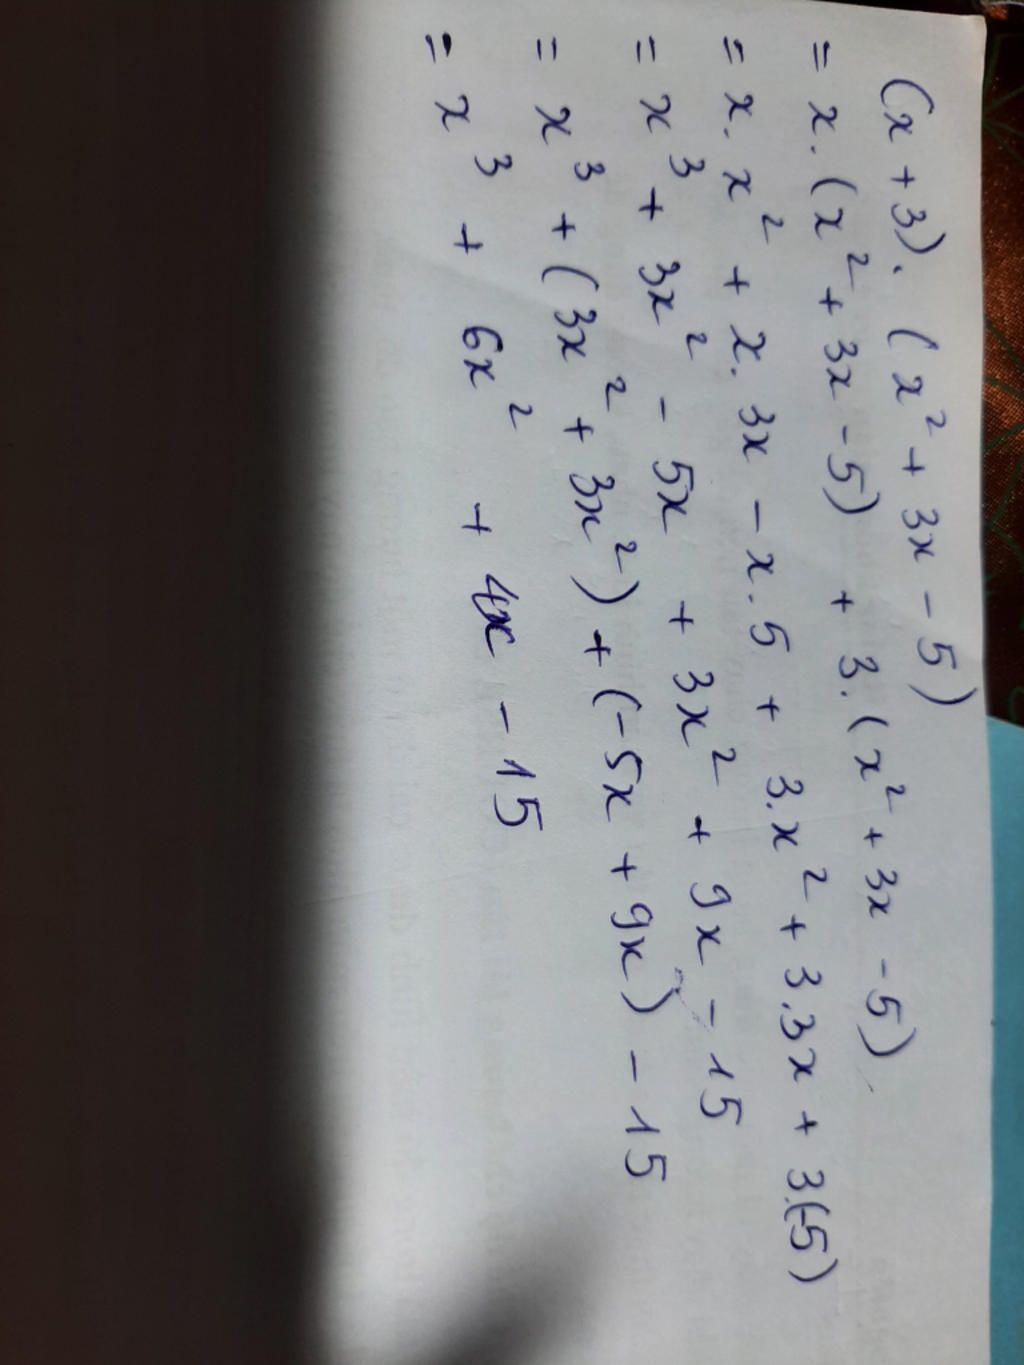 (x + 3). (x² + 3x - 5)
= x. (x² + 3x - 5) + 3. (x² + 3x - 5)
= x. x² + x. 3x - x. 5 + 3. x² + 3. 3x + 3.(-5)
= x³ + 3x² - 5x + 3x² + 9x - 15
= x³ + (3x² + 3x²) + (-5x + 9x) - 15
= x³ + 6x² + 4x - 15